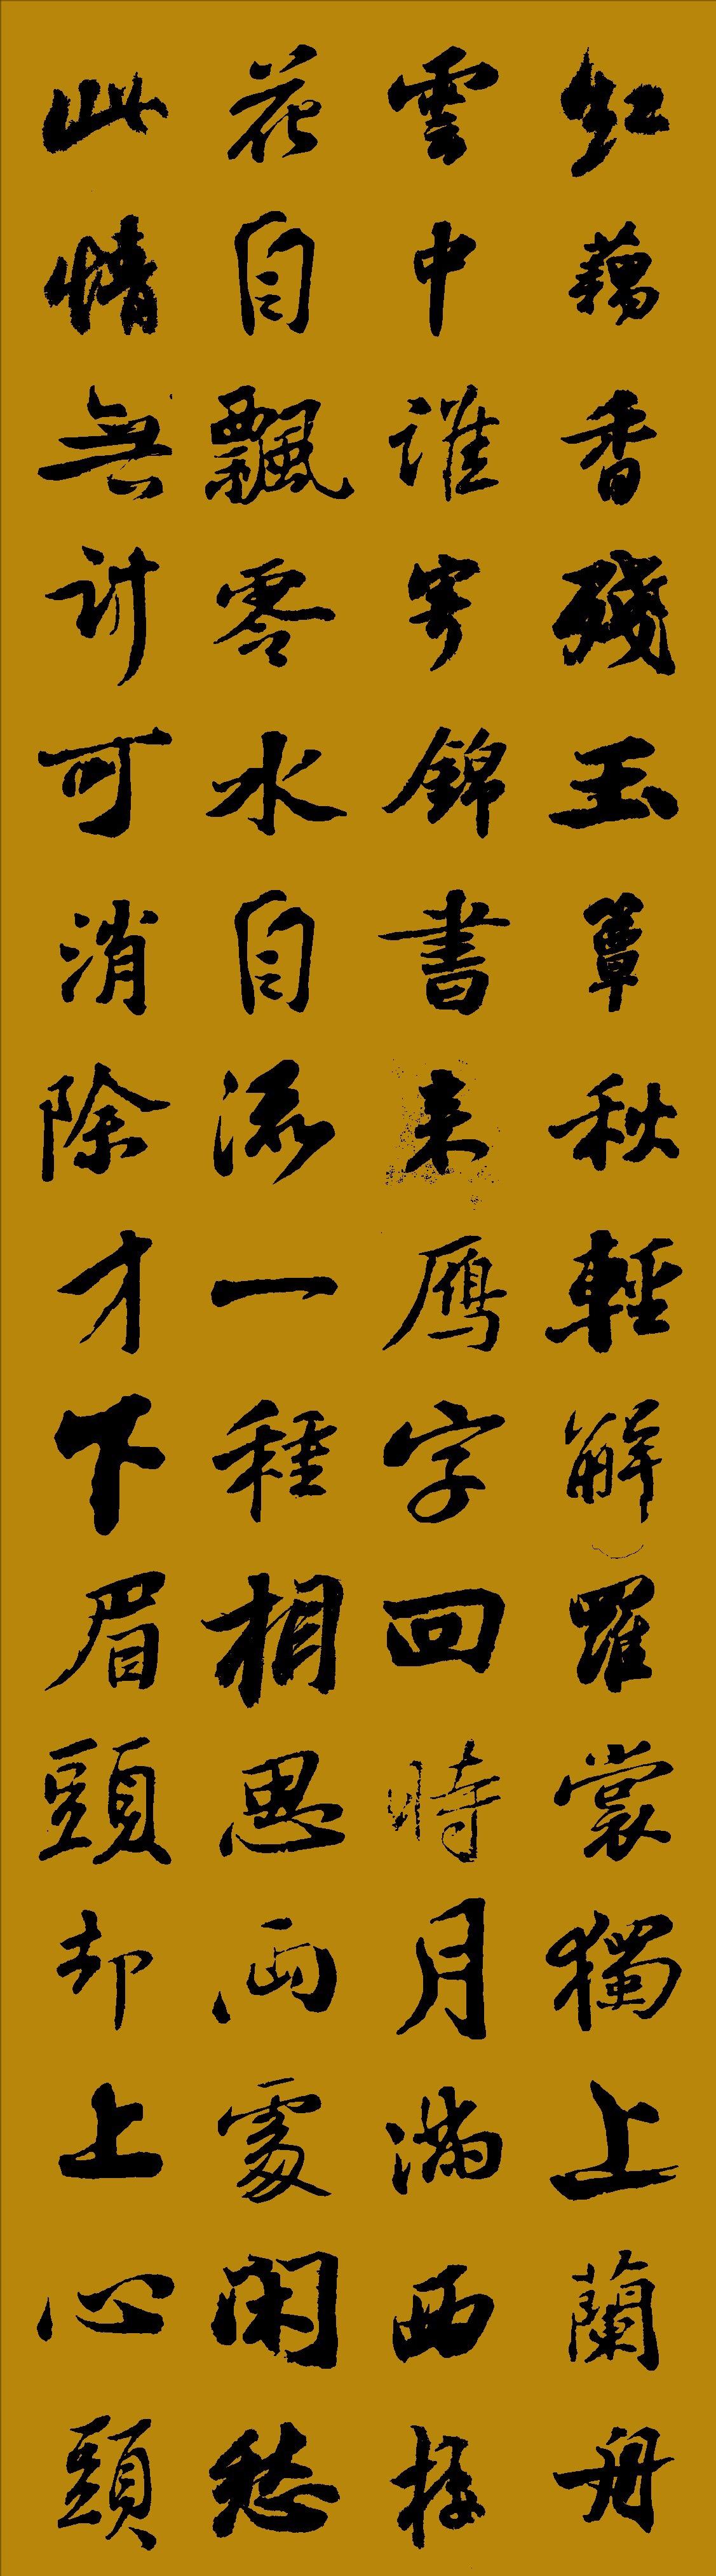 紅藕香殘玉簟秋輕解羅裳獨上蘭舟
雲中誰寄錦書来雁字回時月滿西樓
花自飄零水自流一種相思兩處闲愁
此情無計可消除才下眉頭却上心頭